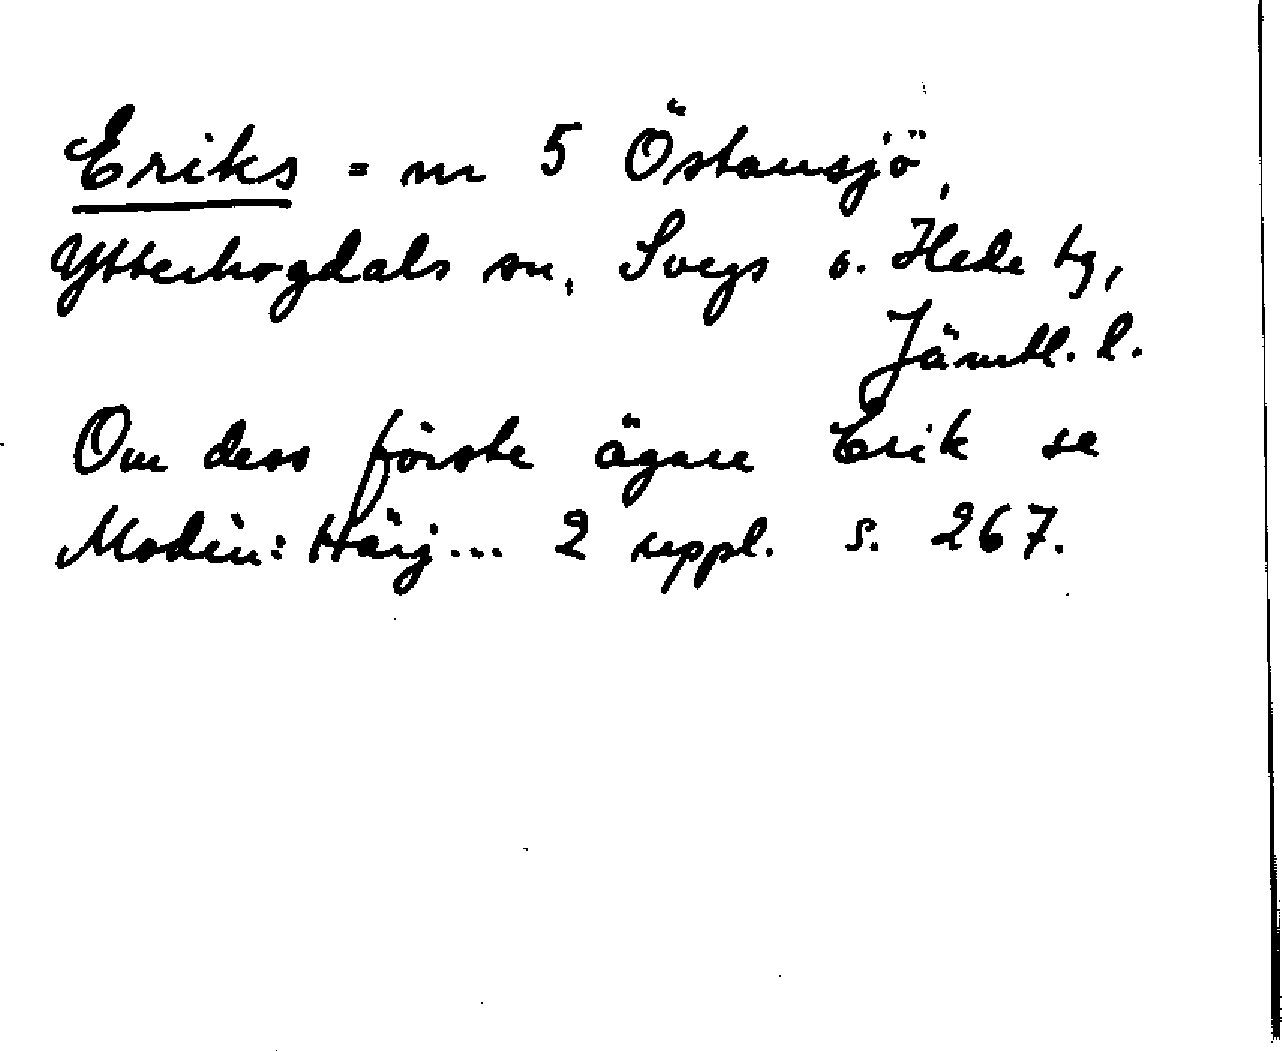 Eriks = nr 5 Östansjö,
Ytterhogdals sn, Svegs o. Hede tg,
Jämtl. l.
Om dess förste ägare Erik se
Modin: Härj... 2 uppl. s. 267.